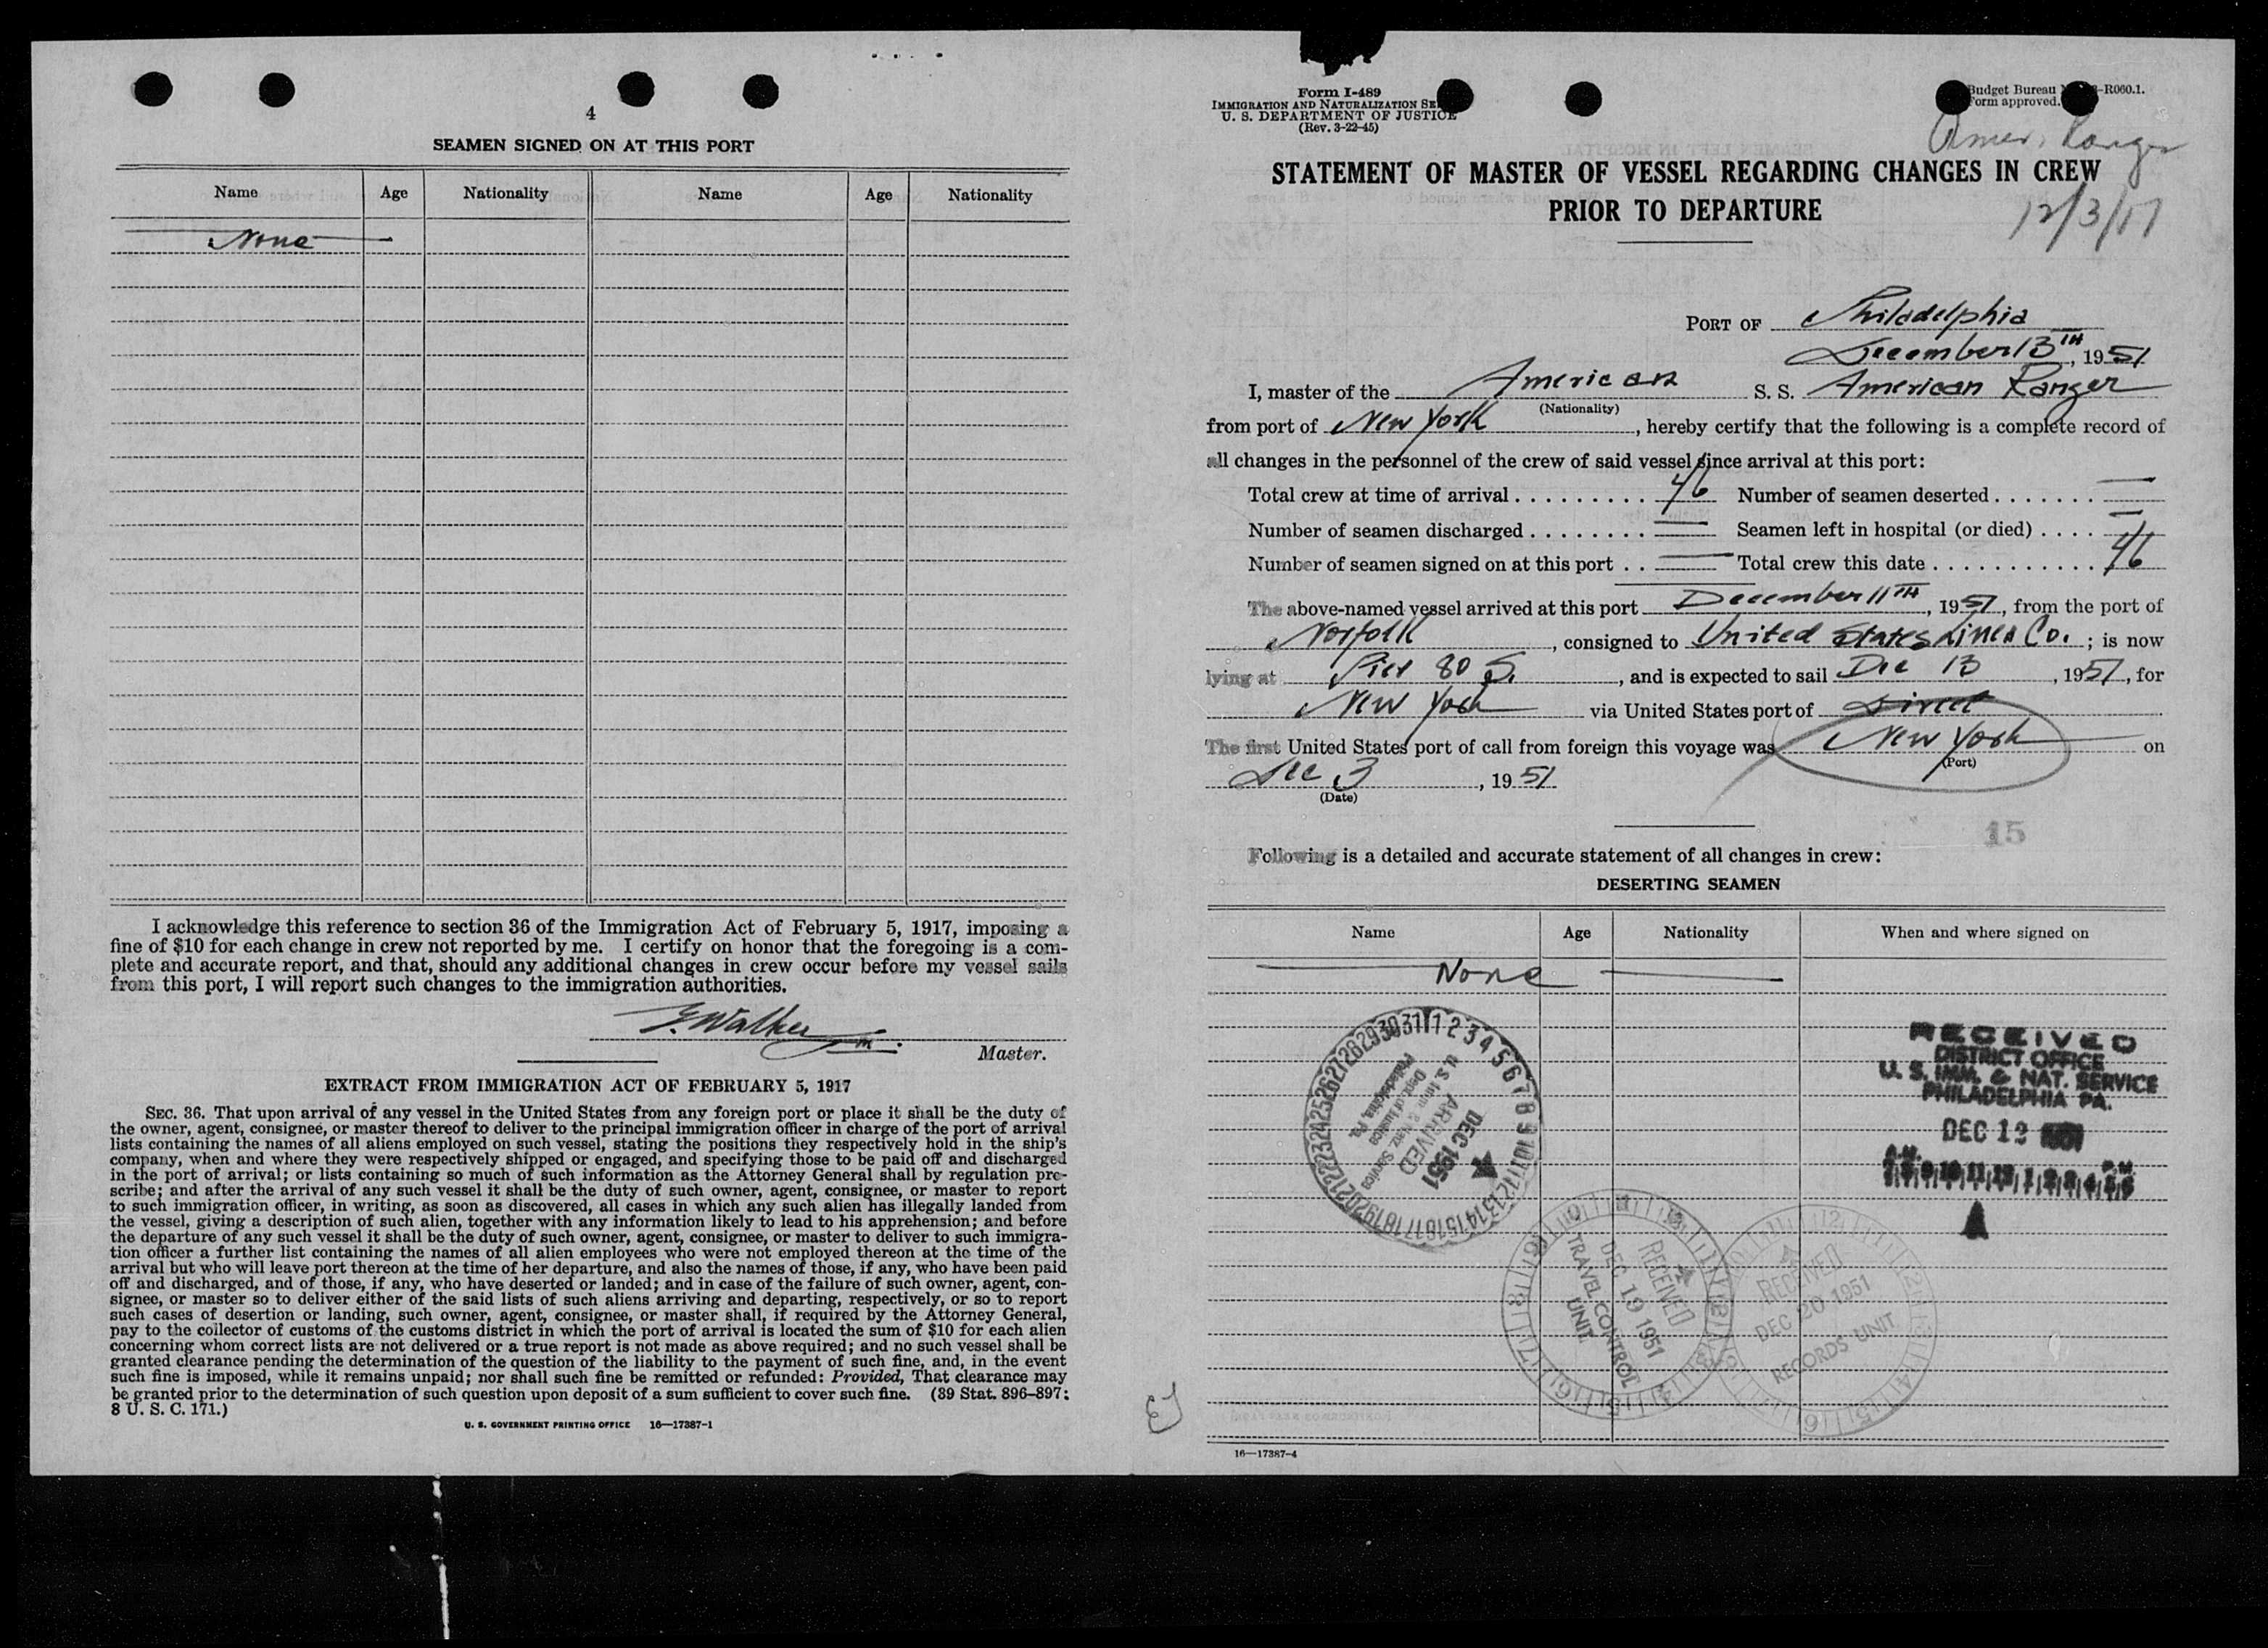 4
SEAMEN SIGNED ON AT THIS PORT
Name Age Nationality Name Age Nationality
None
I acknowledge this reference to section 36 of the Immigration Act of February 5, 1917, imposing a
fine of $10 for each change in crew not reported by me. I certify on honor that the foregoing is a com-
plete and accurate report, and that, should any additional changes in crew occur before my vessel sails
from this port, I will report such changes to the immigration authorities.
Walker
Master.
EXTRACT FROM IMMIGRATION ACT OF FEBRUARY 5, 1917
SEC. 36. That upon arrival of any vessel in the United States from any foreign port or place it shall be the duty of
the owner, agent, consignee, or master thereof to deliver to the principal immigration officer in charge of the port of arrival
lists containing the names of all aliens employed on such vessel, stating the positions they respectively hold in the ship's
company, when and where they were respectively shipped or engaged, and specifying those to be paid off and discharged
in the port of arrival; or lists containing so much of such information as the Attorney General shall by regulation pre-
scribe; and after the arrival of any such vessel it shall be the duty of such owner, agent, consignee, or master to report
to such immigration officer, in writing, as soon as discovered, all cases in which any such alien has illegally landed from
the vessel, giving a description of such alien, together with any information likely to lead to his apprehension; and before
the departure of any such vessel it shall be the duty of such owner, agent, consignee, or master to deliver to such immigra-
tion officer a further list containing the names of all alien employees who were not employed thereon at the time of the
arrival but who will leave port thereon at the time of her departure, and also the names of those, if any, who have been paid
off and discharged, and of those, if any, who have deserted or landed; and in case of the failure of such owner, agent, con-
signee, or master so to deliver either of the said lists of such aliens arriving and departing, respectively, or so to report
such cases of desertion or landing, such owner, agent, consignee, or master shall, if required by the Attorney General,
pay to the collector of customs of the customs district in which the port of arrival is located the sum of $10 for each alien
concerning whom correct lists are not delivered or a true report is not made as above required; and no such vessel shall be
granted clearance pending the determination of the question of the liability to the payment of such fine, and, in the event
such fine is imposed, while it remains unpaid; nor shall such fine be remitted or refunded: Provided, That clearance may
be granted prior to the determination of such question upon deposit of a sum sufficient to cover such fine. (39 Stat. 896–897;
8 U. S. C. 171.)
U. S. GOVERNMENT PRINTING OFFICE 16—17387-1
Form I-489
IMMIGRATION AND NATURALIZATION
U. S. DEPARTMENT OF JUSTICE
(Rev. 3-22-45)
Budget Bureau -R060.1.
Form approved.
Amer. Ranger
STATEMENT OF MASTER OF VESSEL REGARDING CHANGES IN CREW
PRIOR TO DEPARTURE
12/3/
PORT OF Philadelphia
December 13TH, 1951
I, master of the American S. S. American Ranger
(Nationality)
from port of New York, hereby certify that the following is a complete record of
all changes in the personnel of the crew of said vessel since arrival at this port:
Total crew at time of arrival . . . . . . . . . 46 Number of seamen deserted . . . . . . . —
Number of seamen discharged . . . . . . . . — Seamen left in hospital (or died) . . . . —
Number of seamen signed on at this port . . — Total crew this date . . . . . . . . . . . . 46
The above-named vessel arrived at this port December 11TH, 1951, from the port of
Norfolk, consigned to United States Lines Co.; is now
lying at Pier 80 S., and is expected to sail Dec 13, 1951, for
New York via United States port of Direct
The first United States port of call from foreign this voyage was New York on
(Port)
Dec 3, 1951
(Date)
15
Following is a detailed and accurate statement of all changes in crew:
DESERTING SEAMEN
Name Age Nationality When and where signed on
None
U. S. Imm. & Natz. Service
Dept. of Justice
Philadelphia, Pa.
ARRIVED
DEC 1951
RECEIVED
DISTRICT OFFICE
U. S. IMM. & NAT. SERVICE
PHILADELPHIA PA.
DEC 13
A.M. P.M.
7 8 9 10 11 12 1 2 3 4 5 6
RECEIVED
DEC 19 1951
TRAVEL CONTROL
UNIT
RECEIVED
DEC 20 1951
RECORDS UNIT
16—17387-4